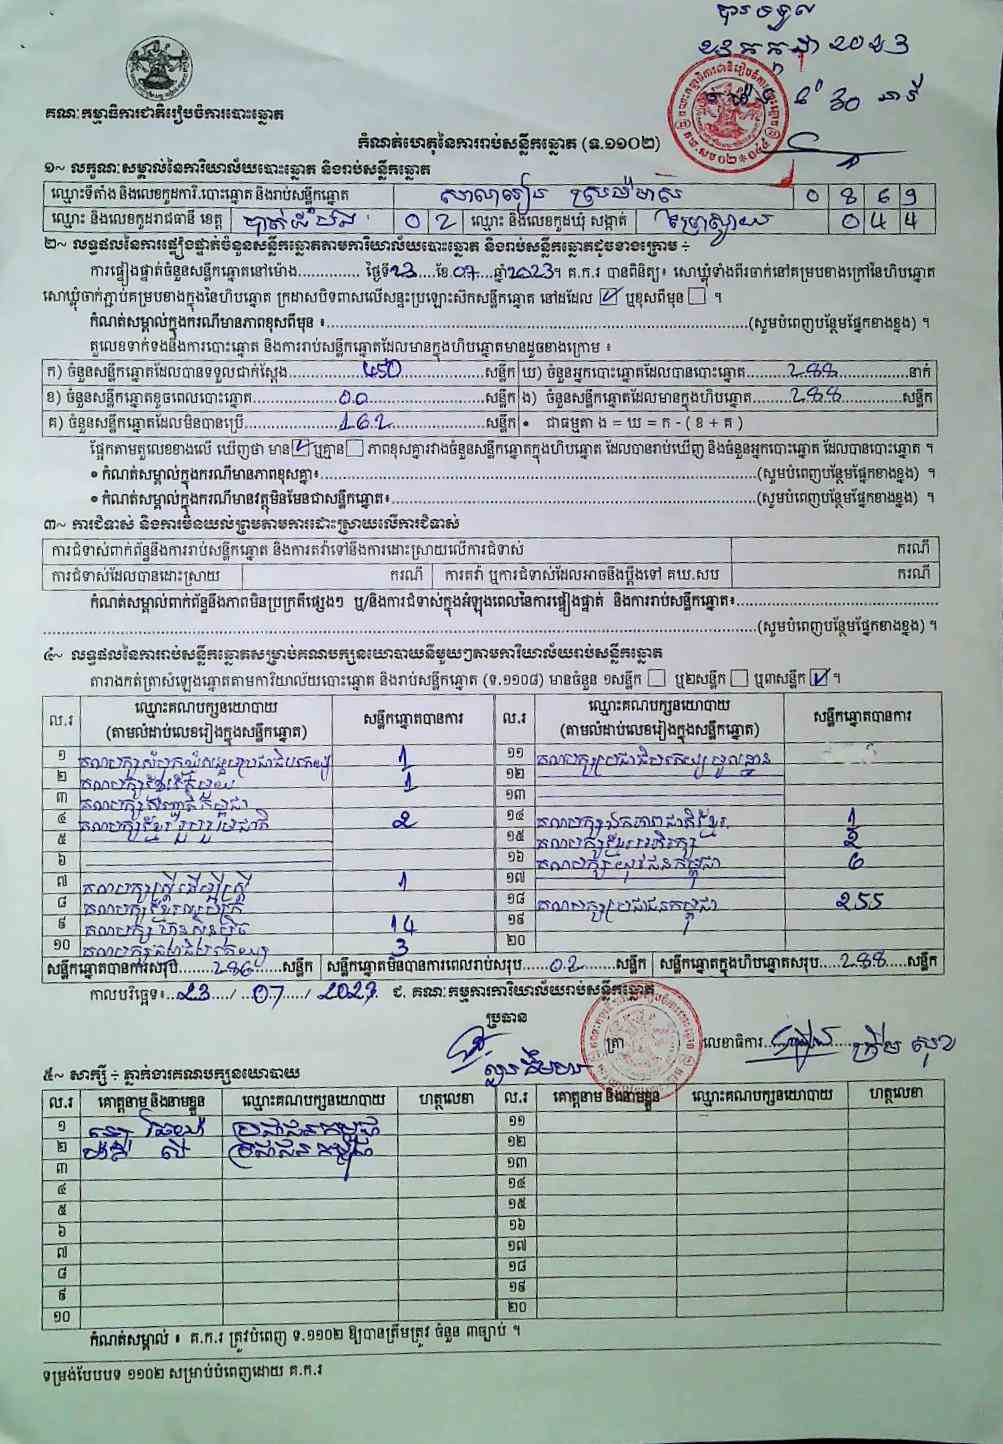 បានទទួល
២៣ កក្កដា ២០២៣
គណៈកម្មាធិការជាតិរៀបចំការបោះឆ្នោត
កំណត់ហេតុនៃការរាប់សន្លឹកឆ្នោត (ទ.១១០២)
១~ លក្ខណៈសម្គាល់នៃការិយាល័យបោះឆ្នោត និងរាប់សន្លឹកឆ្នោត
ឈ្មោះទីតាំង និងលេខកូដការិ.បោះឆ្នោត និងរាប់សន្លឹកឆ្នោត 0 8 6 9
ឈ្មោះ និងលេខកូដរាជធានី ខេត្ត បាត់ដំបង 0 2 ឈ្មោះ និងលេខកូដឃុំ សង្កាត់ ព្រៃស្វាយ 0 4 4
២~ លទ្ធផលនៃការផ្ទៀងផ្ទាត់ចំនួនសន្លឹកឆ្នោតតាមការិយាល័យបោះឆ្នោត និងរាប់សន្លឹកឆ្នោតដូចខាងក្រោម ÷
ការផ្ទៀងផ្ទាត់ចំនួនសន្លឹកឆ្នោតនៅម៉ោង.............. ថ្ងៃទី23....ខែ.07...ឆ្នាំ2023។ គ.ក.រ បានពិនិត្យ៖ សោឃ្លុំទាំងពីរចាក់នៅគម្របខាងក្រៅនៃហិបឆ្នោត
សោឃ្លុំចាក់ភ្ជាប់គម្របខាងក្នុងនៃហិបឆ្នោត ក្រដាសបិទពាសលើសន្ទះប្រឡោះស៊កសន្លឹកឆ្នោត នៅដដែល ☑ ឬខុសពីមុន ☐ ។
កំណត់សម្គាល់ក្នុងករណីមានភាពខុសពីមុន ៖..........(សូមបំពេញបន្ថែមផ្នែកខាងខ្នង) ។
តួលេខទាក់ទងនឹងការបោះឆ្នោត និងការរាប់សន្លឹកឆ្នោតដែលមានក្នុងហិបឆ្នោតមានដូចខាងក្រោម ៖
ក) ចំនួនសន្លឹកឆ្នោតដែលបានទទួលជាក់ស្តែង..........450..........សន្លឹក ឃ) ចំនួនអ្នកបោះឆ្នោតដែលបានបោះឆ្នោត..........288..........នាក់
ខ) ចំនួនសន្លឹកឆ្នោតខូចពេលបោះឆ្នោត..........00..........សន្លឹក ង) ចំនួនសន្លឹកឆ្នោតដែលមានក្នុងហិបឆ្នោត..........288..........សន្លឹក
គ) ចំនួនសន្លឹកឆ្នោតដែលមិនបានប្រើ..........162..........សន្លឹក • ជាធម្មតា ង = ឃ = ក - ( ខ + គ )
ផ្អែកតាមតួលេខខាងលើ ឃើញថា មាន ☑ ឬគ្មាន ☐ ភាពខុសគ្នារវាងចំនួនសន្លឹកឆ្នោតក្នុងហិបឆ្នោត ដែលបានរាប់ឃើញ និងចំនួនអ្នកបោះឆ្នោត ដែលបានបោះឆ្នោត ។
• កំណត់សម្គាល់ក្នុងករណីមានភាពខុសគ្នា៖..........(សូមបំពេញបន្ថែមផ្នែកខាងខ្នង) ។
• កំណត់សម្គាល់ក្នុងករណីមានវត្ថុមិនមែនជាសន្លឹកឆ្នោត៖..........(សូមបំពេញបន្ថែមផ្នែកខាងខ្នង) ។
៣~ ការជំទាស់ និងការមិនយល់ព្រមតាមការដោះស្រាយលើការជំទាស់
ការជំទាស់ពាក់ព័ន្ធនឹងការរាប់សន្លឹកឆ្នោត និងការតវ៉ាទៅនឹងការដោះស្រាយលើការជំទាស់ ករណី
ការជំទាស់ដែលបានដោះស្រាយ ករណី ការតវ៉ា ឬការជំទាស់ដែលអាចនឹងប្តឹងទៅ គឃ.សប ករណី
កំណត់សម្គាល់ពាក់ព័ន្ធនឹងភាពមិនប្រក្រតីផ្សេងៗ ឬ/និងការជំទាស់ក្នុងអំឡុងពេលនៃការផ្ទៀងផ្ទាត់ និងការរាប់សន្លឹកឆ្នោត៖..........
..........(សូមបំពេញបន្ថែមផ្នែកខាងខ្នង) ។
៤~ លទ្ធផលនៃការរាប់សន្លឹកឆ្នោតសម្រាប់គណបក្សនយោបាយនីមួយៗតាមការិយាល័យរាប់សន្លឹកឆ្នោត
តារាងកត់ត្រាសំឡេងឆ្នោតតាមការិយាល័យបោះឆ្នោត និងរាប់សន្លឹកឆ្នោត (ទ.១១០៨) មានចំនួន ១សន្លឹក ☐ ឬ២សន្លឹក ☐ ឬ៣សន្លឹក ☑ ។
ល.រ ឈ្មោះគណបក្សនយោបាយ (តាមលំដាប់លេខរៀងក្នុងសន្លឹកឆ្នោត) សន្លឹកឆ្នោតបានការ ល.រ ឈ្មោះគណបក្សនយោបាយ (តាមលំដាប់លេខរៀងក្នុងសន្លឹកឆ្នោត) សន្លឹកឆ្នោតបានការ
១ គណបក្សសំបុកឃ្មុំសង្គមប្រជាធិបតេយ្យ 1 ១១ គណបក្សប្រជាធិបតេយ្យមូលដ្ឋាន
២ គណបក្សខ្មែរតែមួយ 1 ១២
៣ គណបក្សសញ្ជាតិកម្ពុជា ១៣
៤ គណបក្សខ្មែររួបរួមជាតិ 2 ១៤ គណបក្សឯកភាពជាតិខ្មែរ 1
៥ ១៥ គណបក្សខ្មែរអភិរក្ស 2
៦ ១៦ គណបក្សយុវជនកម្ពុជា 6
៧ គណបក្សស្ត្រីដើម្បីស្ត្រី 1 ១៧
៨ ១៨ គណបក្សប្រជាជនកម្ពុជា 255
៩ គណបក្សហ៊្វុនស៊ិនប៉ិច 14 ១៩
១០ 3 ២០
សន្លឹកឆ្នោតបានការសរុប.......286.......សន្លឹក សន្លឹកឆ្នោតមិនបានការពេលរាប់សរុប......02.......សន្លឹក សន្លឹកឆ្នោតក្នុងហិបឆ្នោតសរុប.....288.......សន្លឹក
កាលបរិច្ឆេទ៖..23..../...07...../ 2023 ជ. គណៈកម្មការការិយាល័យរាប់សន្លឹកឆ្នោត
ប្រធាន
ត្រា
លេខាធិការ
៥~ សាក្សី ÷ ភ្នាក់ងារគណបក្សនយោបាយ
ល.រ គោត្តនាម និងនាមខ្លួន ឈ្មោះគណបក្សនយោបាយ ហត្ថលេខា ល.រ គោត្តនាម និងនាមខ្លួន ឈ្មោះគណបក្សនយោបាយ ហត្ថលេខា
១ ប្រជាជនកម្ពុជា ១១
២ ប្រជាជនកម្ពុជា ១២
៣ ១៣
៤ ១៤
៥ ១៥
៦ ១៦
៧ ១៧
៨ ១៨
៩ ១៩
១០ ២០
កំណត់សម្គាល់ ៖ គ.ក.រ ត្រូវបំពេញ ទ.១១០២ ឱ្យបានត្រឹមត្រូវ ចំនួន ៣ច្បាប់ ។
ទម្រង់បែបបទ ១១០២ សម្រាប់បំពេញដោយ គ.ក.រ